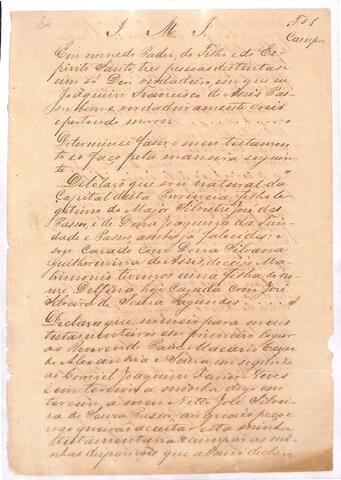 J. M. J.
Em nome do Padre, do Filho e do Es-
pirito Santo, tres pessoas distinctas e
um só Deos verdadeiro, em que eu
Joaquim Francisco de Assis Pas-
sos, bem e verdadeiramente creio
e pertendo morrer
Determinei faser o meu testamento
e o faço pela maneira seguin-
te
Declaro que sou natural da
Capital desta Provincia, filho le-
gitimo do Major Silvestre José dos
Passos, e de Dona Joaquina da Trin-
dade e Passos, ambos já falecidos: e
sou Casado com Dona Silvana
Guilhermina de Assis, de cujo Ma-
trimonio tivemos uma filha de no-
me Delfina, hoje Casada com José
Ribeiro de Fagundes
Declaro que nomeio para meus
testamenteiros em primeiro logar
ao Reverendo Padre Macario
de Alexandria e Souza, em segundo
ao Coronel Joaquim Xavier Neves
e em terceiro a minha, digo em
terceiro a meu Netto José Silvei-
ra de Souza Passos, aos quais peço e
rogo queirão acceitar esta minha
testamentaria e cumprir as mi-
nhas disposições que a baixo declaro